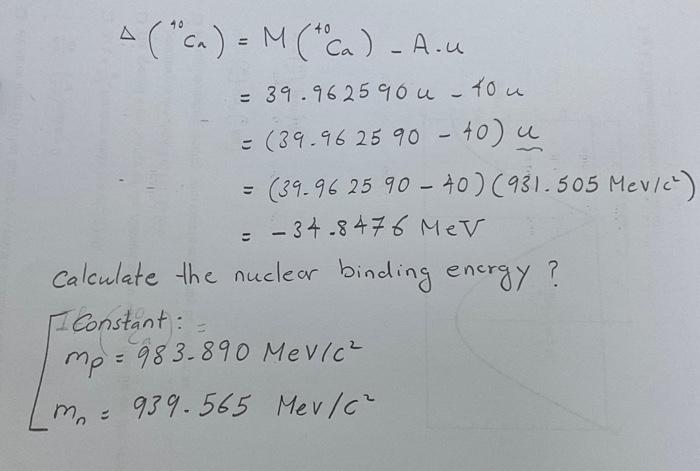 Δ (⁴⁰Ca) = M (⁴⁰Ca) - A.u
= 39.962590 u - 40 u
= (39.962590 - 40) u
= (39.962590 - 40) (931.505 MeV/c²)
= -34.8476 MeV
Calculate the nuclear binding energy ?
Constant :
mp = 983.890 MeV/c²
mn = 939.565 Mev/c²